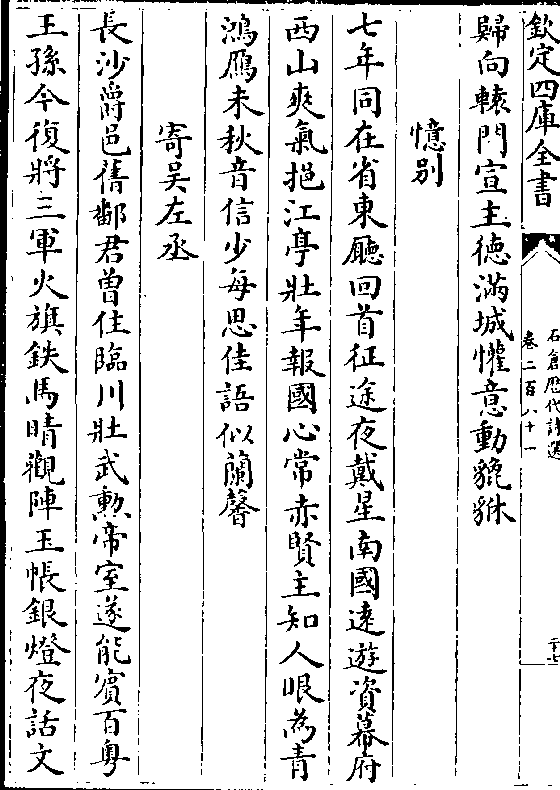 欽定四庫全書
石倉歷代詩選
卷二百八十一
二十七
歸向轅門宣主德滿城懽意動貔貅
憶别
七年同在省東廳回首征途夜戴星南國遠遊資幕府
西山爽氣挹江亭壯年報國心常赤賢主知人眼為青
鴻雁未秋音信少每思佳語似蘭馨
寄吳左丞
長沙爵邑舊鄱君曾住臨川壯武勲帝室遂能賓百粤
王孫今復將三軍火旗鉄馬晴觀陣玉帳銀燈夜話文